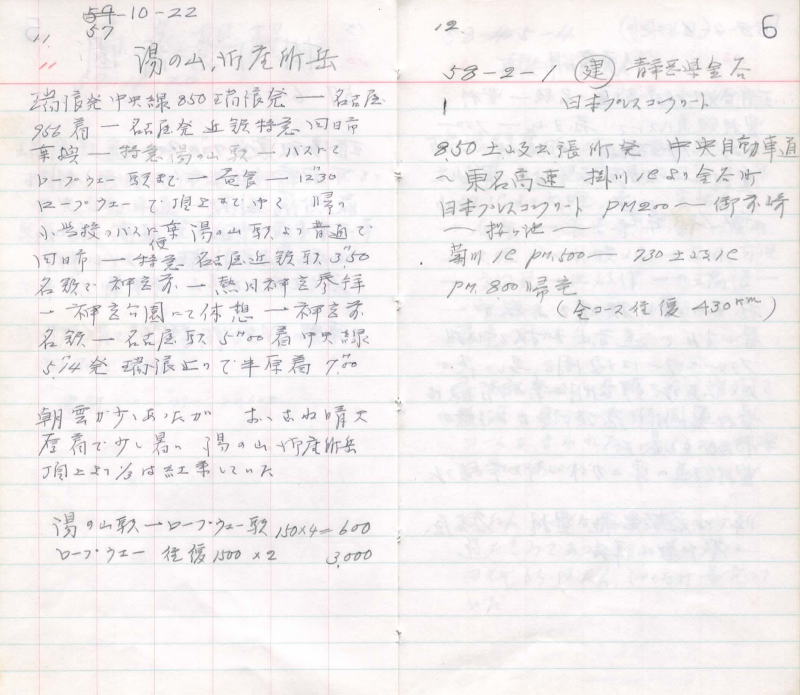 59-10-22
57
11.
湯の山,御在所岳
瑞浪発 中央線 850 瑞浪発 ー 名古屋
956 着 ー 名古屋発 近鉄特急 四日市
乗換 ー 特急 湯の山駅 ー バスにて
ロープウェー 駅まで ー 昼食 ー 12"30
ロープウェー で 頂上まで ゆく 帰り
小学校のバスに便乗 湯の山駅より普通で
四日市 ー 特急 名古屋近鉄駅 3"50
名鉄で 神宮前 ー 熱田神宮参拝
ー 神宮公園にて休想 ー 神宮前
名鉄 ー 名古屋駅 5"00 着 中央線
5"14 発 瑞浪 で 半原着 7"00
朝雲が少しあったが おおむね晴天
厚着で少し暑い 湯の山 御在所岳
頂上より⅓は紅葉していた
湯の山駅ーロープ・ウェー駅 150×4=600
ロープ・ウェー 往復 1500 ×2 3,000
12.
6
58-2-1 建 静岡県金谷
1 日本プレスコンクリート
8.50 土岐出張所発 中央自動車道
〜東名高速 掛川ICより金谷町
日本プレスコンクリート PM 2.00 ー 御前崎
ー 桜ヶ池 ー
菊川 IC PM, 5.00 ー 7.30 土岐IC
PM. 8.00 帰宅
(全コース往復 430km)